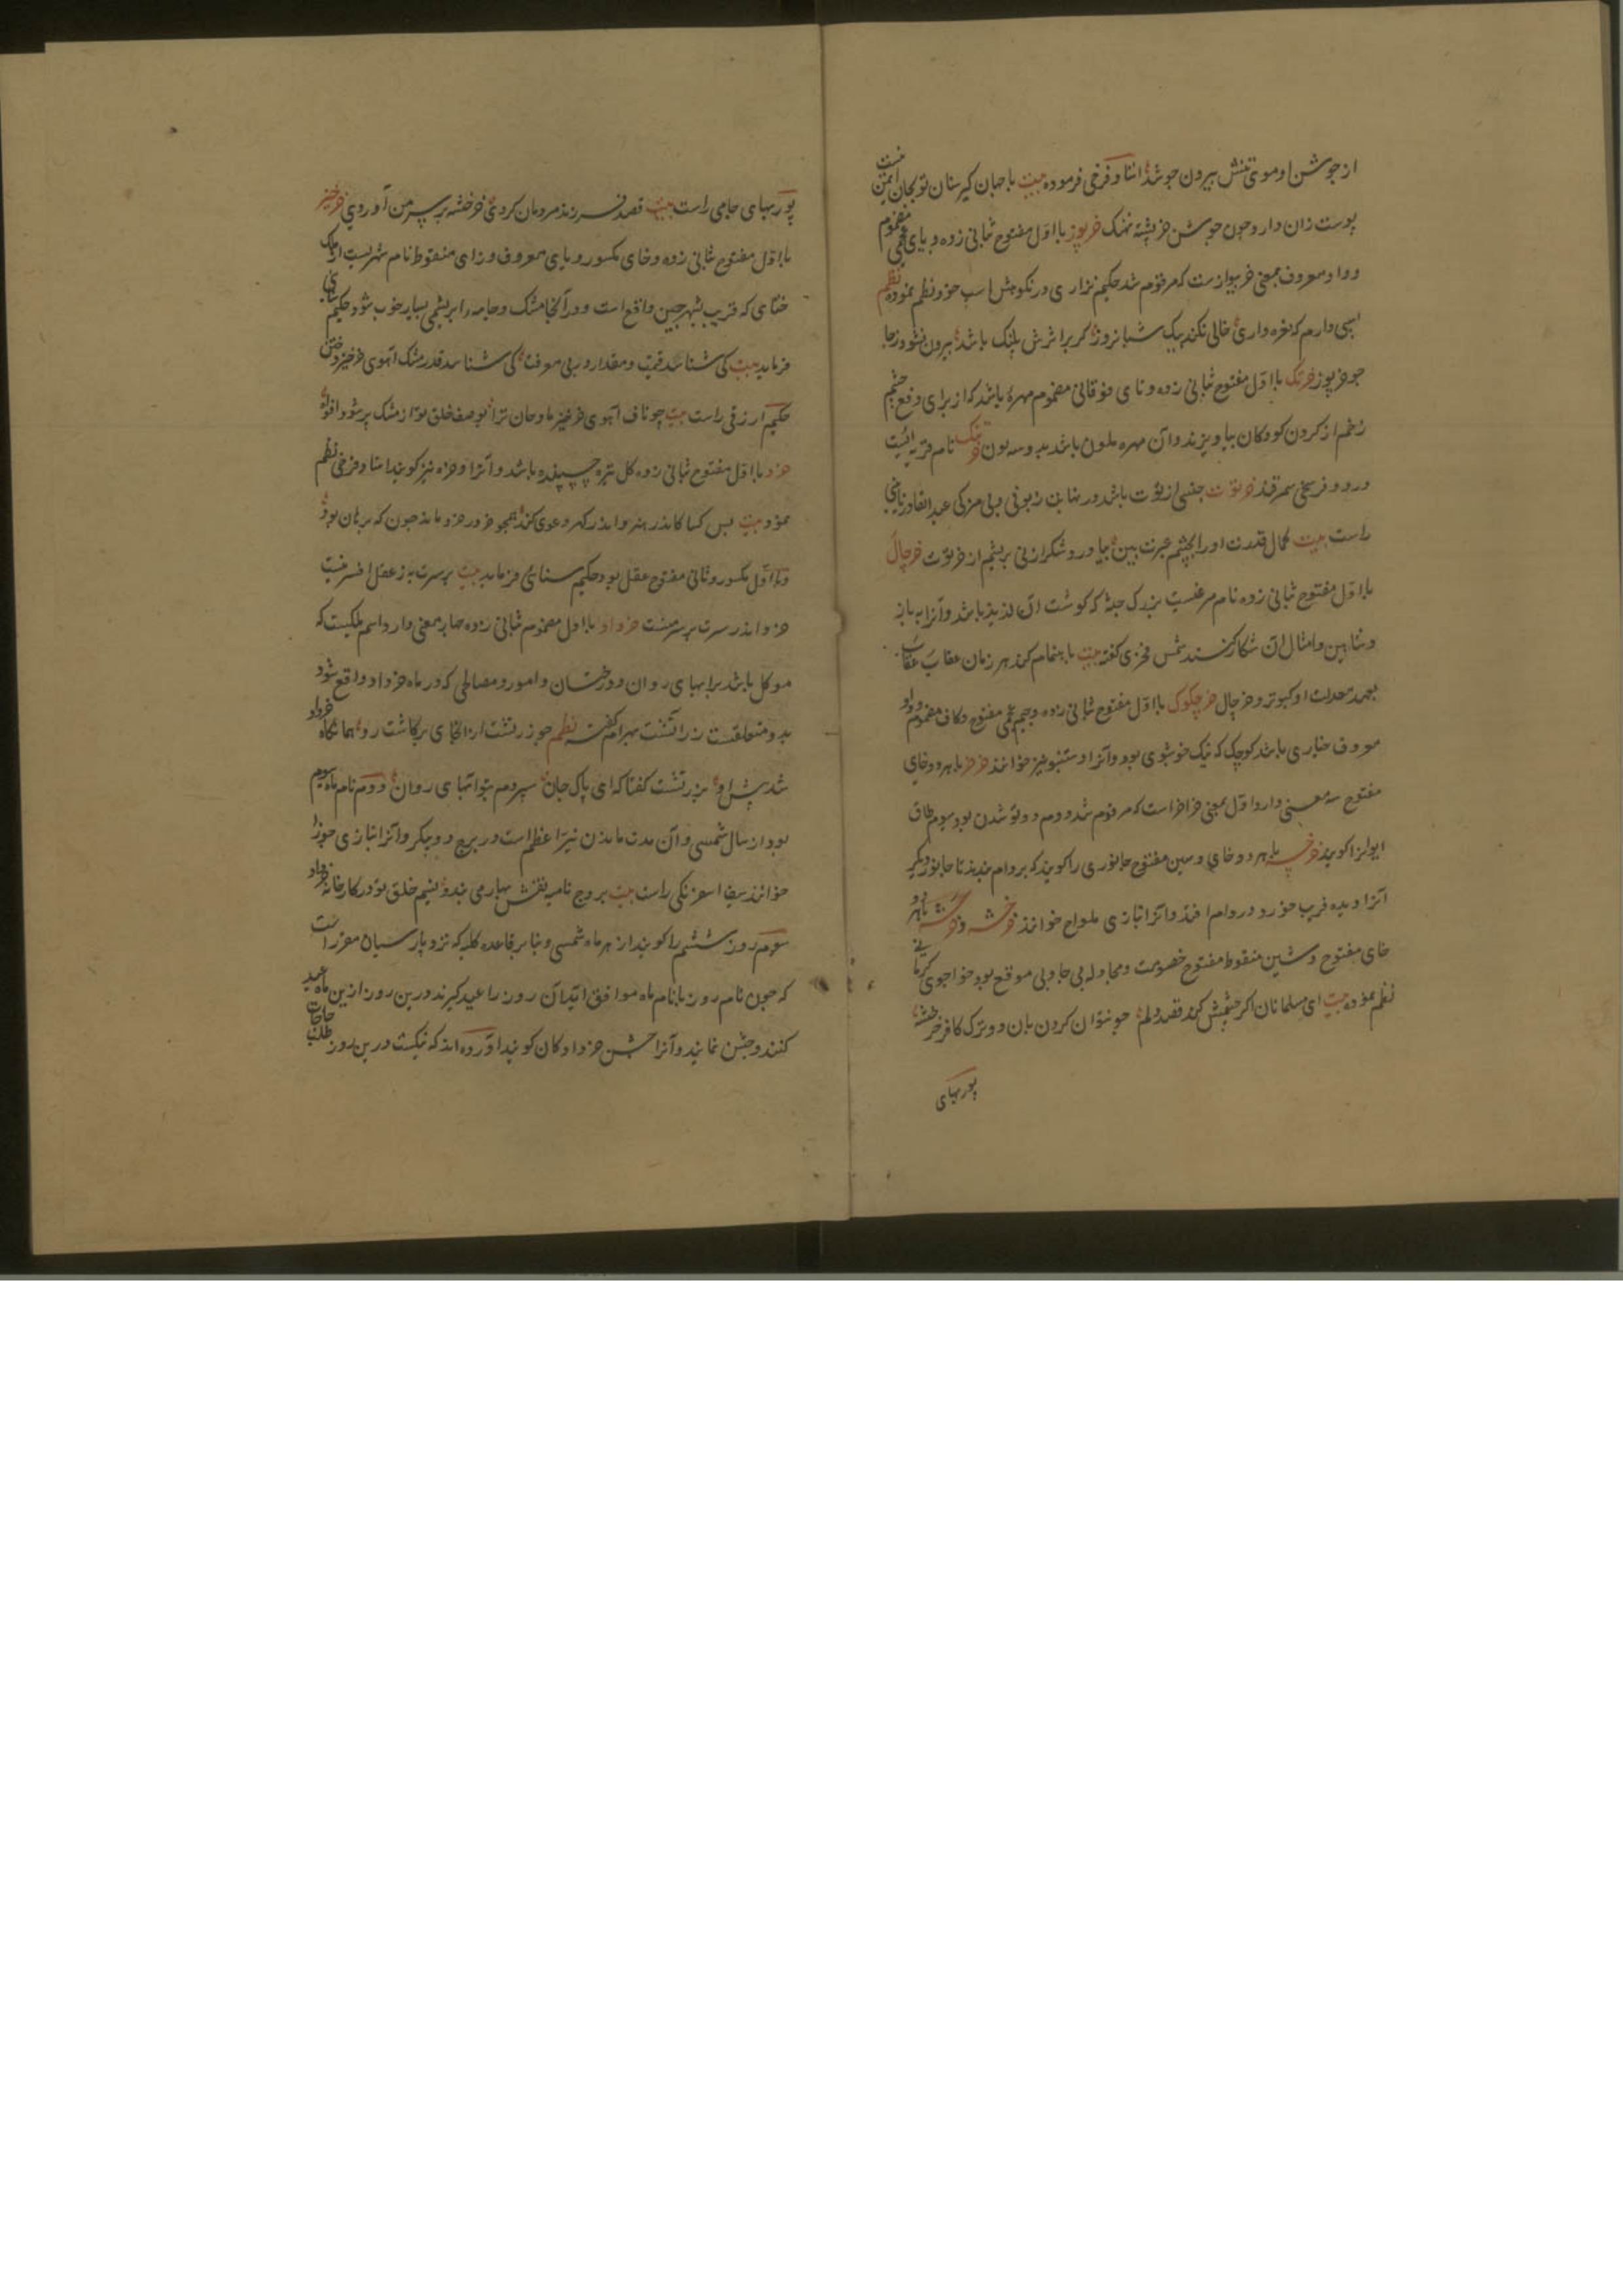 از جوشن او موی تنش بیرون جوشد استاد فرخی فرموده بیت با جهان گیر سنان تو بجان ایمن نیست
پوست زان دارد چون جوشن خرپشته نهنگ خرپوز با اول مفتوح بثانی زده و بای عجمی مضموم
و واو معروف بمعنی خربیواز ست که مرقوم شد حکیم نزاری در نکوهش اسپ خود نظم نموده نظم
اسبی دارم که نغره داری خالی نکند بیک شبانروز گر برا ثرش پلنگ باشد بیرون نشود زجا
جو خرپوز خرتک با اول مفتوح بثانی زده و تای فوقانی مضموم مهره باشد که از برای دفع چشم
زخم از گردن کودکان بیاویزند و آن مهره ملون باشد بدو سه لون خرتنک نام قریه ایست
در دو فرسخی سمرقند خرتوت جنسی از توت باشد در نهایت زبونی و بی مزکی عبد القادر نایینی
راست بیت کمال قدرت او را بچشم عبرت بین بیاورد شکر از نی بریشم از خرتوت خرچال
با اول مفتوح بثانی زده نام مرغیست بزرک جثه که گوشت آن لذیذ باشد و آنرا به باز
و شاهین و امثال آن شکار کنند شمس فخری گفته بیت باهتمام کند هر زمان عقاب عقاب
بعهد معدلت او کبوتر و خرچال خرچکوک با اول مفتوح بثانی زده و جیم عجمی مفتوح و کاف مضموم و واو
معروف خیاری باشد کوچک که نیک خوشبوی بود و آنرا دستنبو نیز خوانند خرخر با هر دو خای
مفتوح سه معنی دارد اول بمعنی خرافر است که مرقوم شد دوم دو تو شدن بود سیوم طاق
ایوانرا گویند خرخسه با هر دو خای و سین مفتوح جانوری را گویند که بر دام بندند تا جانور دیگر
آنرا دیده فریب خورد و در دام افتد و آنرا بتازی ملواح خوانند خرخشه و خرخشه با هر دو
خای مفتوح و شین منقوط مفتوح خصومت و مجادله بی جا و بی موقع بود خواجوی کرمانی
نظم نموده بیت ای مسلمانان اگر چشمش کند قصد دلم چو نتوان کردن بان دو ترک کافر خرخشه
پوربهای
پوربهای جامی راست بیت قصد فرزند مردمان کردی خرخشه بر سر من آوردی خرخیز
با اول مفتوح بثانی زده و خای مکسور و یای معروف و زای منقوط نام شهریست از ملک
ختای که قریب بشهر چین واقع است و در آنجا مشک و جامه را ابریشمی بسیار خوب شود حکیم سنایی
فرماید بیت کی شناسد قیمت و مقدار در بی معرفت کی شناسد قدر مشک آهوی خرخیز و ختن
حکیم ارزقی راست بیت چو ناف آهوی خرخیز مادحان ترا بوصف خلق تو از مشک پر شود افواه
خرد با اول مفتوح بثانی زده گل تیره چسپنده باشد و آنرا خره نیز گویند استاد فرخی نظم
نموده بیت بس کسا کاندر هنر و اندر گهر دعوی کند همچو خر در خرد ماند چون که برهان بود
و با اول مکسور و ثانی مفتوح عقل بود حکیم سنائی فرماید بیت بر سرت باز عقل افسر نیست
خرد اندر سرت بر سر نیست خرداد با اول مضموم بثانی زده چهار معنی دارد اسم ملکیست که
موکل باشد برابهای روان و درختان و امور و مصالحی که در ماه خرداد واقع شود
بدو متعلقست زراتشت بهرام گفته نظم چو زرتشت از آنجای برگاشت رو هما نگاه خرداد
شد پیش او بزرتشت گفتا که ای پاک جان سپردم بتو ابهای روان دوم نام ماه سیوم
بود از سال شمسی و آن مدت ماندن نیر اعظم است در برج دو پیکر و آنرا بتازی جوزا
خوانند سیف اسفرنگی راست بیت بروح نامیه نقش بهار می بندد نسیم خلق تو در کارخانه خرداد
سیوم روز ششم را گویند از هر ماه شمسی و بنا بر قاعده کلیه که نزد پارسیان مقرر است
که چون نام روز با نام ماه موافق آید آن روز را عید گیرند درین روز ازین ماه عید
کنند و جشن نمایند و آنرا جشن خردادگان گویند آورده اند که نیکست درین روز طلب حاجات